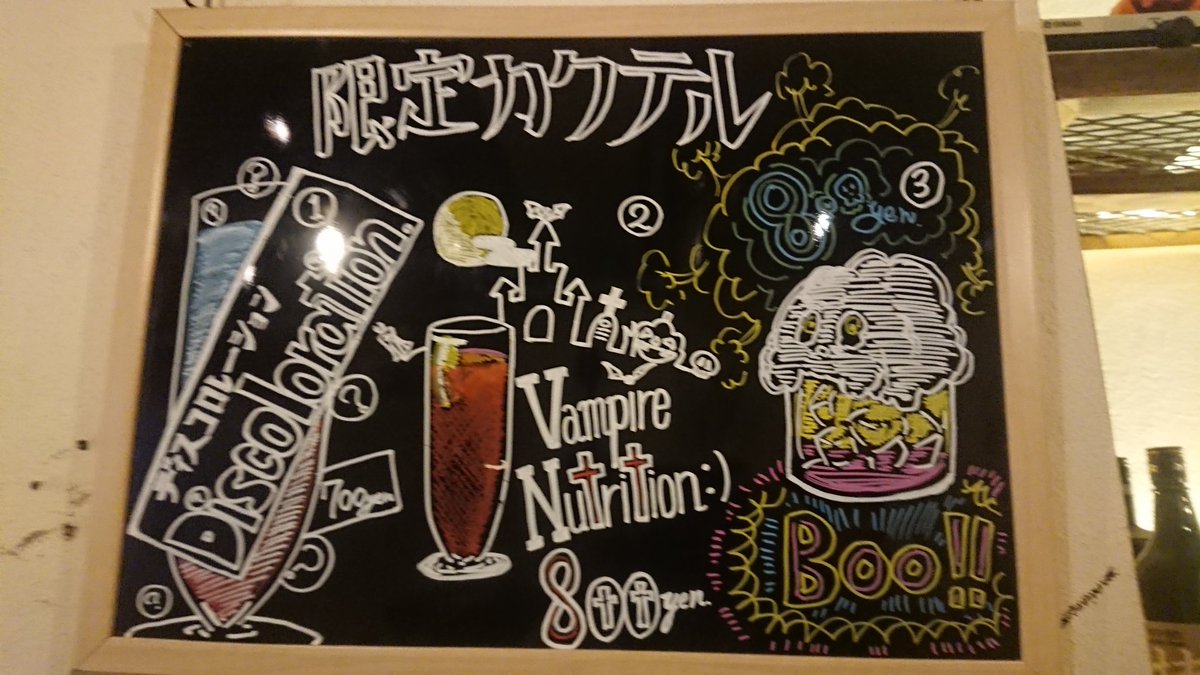 限定カクテル
①
ディスコロレーション
Discoloration.
700yen
②
Vampire
Nutrition:)
800yen.
③
800yen.
Boo!!